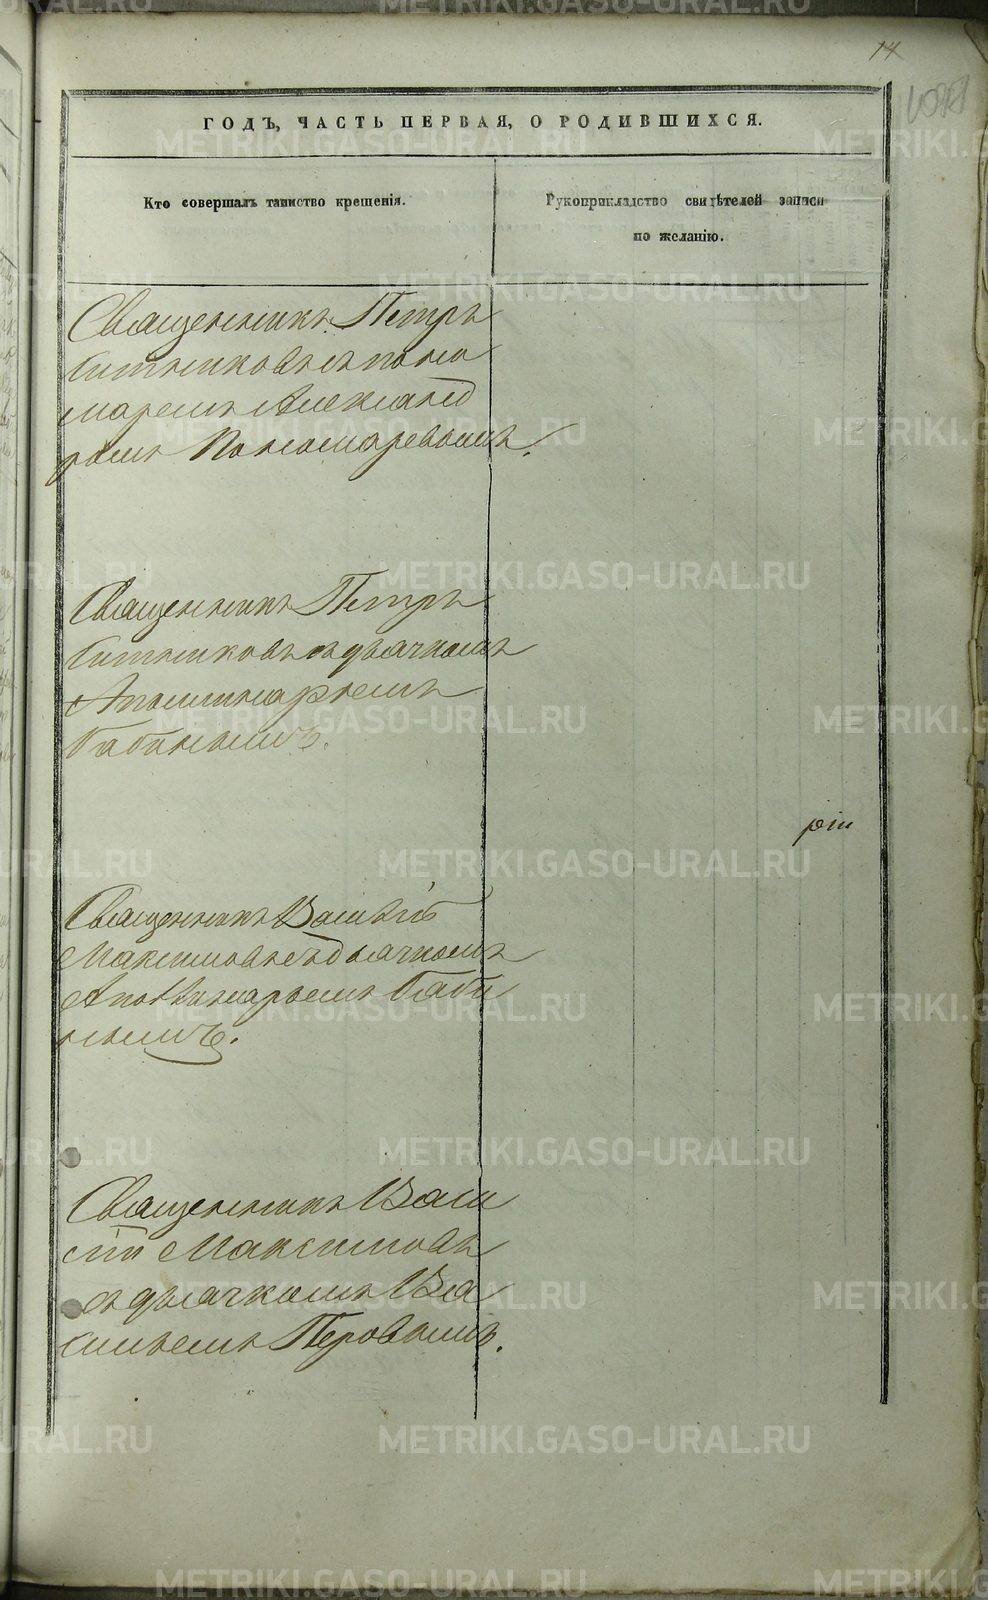 14
ГОДЪ, ЧАСТЬ ПЕРВАЯ, О РОДИВШИХСЯ.
Кто совершалъ таинство крещенія.
Рукоприкладство свидѣтелей записи
по желанію.
Священникъ Петръ
Ситниковъ съ поно
маремъ Александ
ромъ Пономаревымъ.
Священникъ Петръ
Ситниковъ съ дьячкомъ
Аполлинарьемъ
Бабинымъ.
рiи
Священникъ Василій
Максимовъ съ дьячкомъ
Аполлинарьемъ Баби
нымъ.
Священникъ Васи
лій Максимовъ
съ дьячкомъ Ва
сильемъ Перовымъ.
METRIKI.GASO-URAL.RU